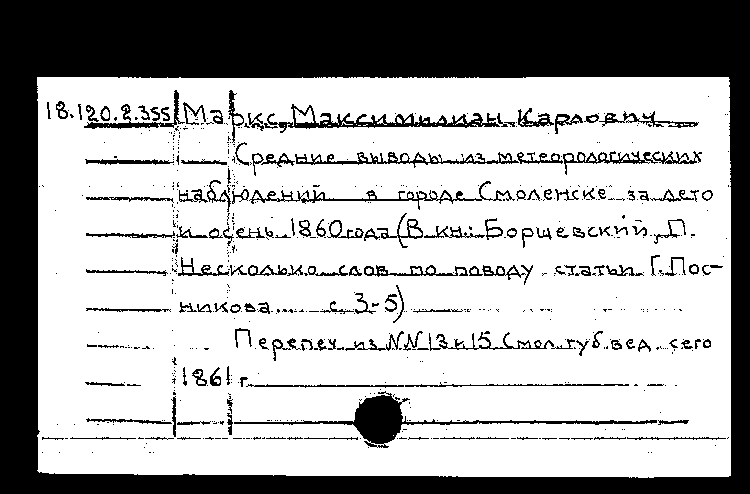 18.120.2.355 Маркс, Максимилиан Карлович
Средние выводы из метеорологических
наблюдений в городе Смоленске за лето
и осень 1860 года (В кн.: Борщевский, П.
Несколько слов по поводу статьи Г. Пос-
никова... с. 3-5)
Перепеч. из NN 13 и 15 Смол. губ. вед. сего
1861 г.